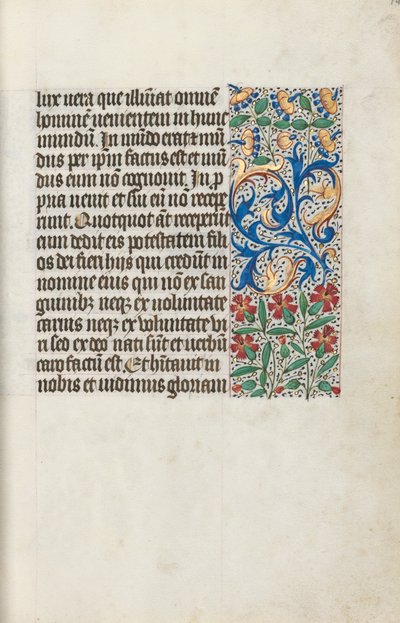 lux uera que illuĩat omnẽ
hominẽ uenientem in hunc
mundũ. In mũdo erat et mũ
dus per ip̃m factus est et mũ
dus eum nõ cognouit. In p̃
pria uenit et sui eũ nõ recepe
runt. Quotquot aũt receperũt
eum dedit eis potestatem fili
os dei fieri hijs qui credũt in
nomine eius qui nõ ex san
guinibꝫ neqꝫ ex uoluntate
carnis neqꝫ ex uoluntate vi
ri sed ex deo nati sũt et uerbũ
caro factũ est. Et hĩtauit in
nobis et uidimus gloriam